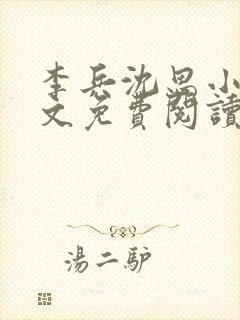 李兵沈思小
文免費閱讀
湯二驴